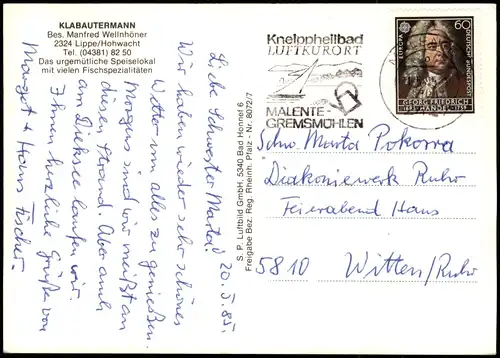 KLABAUTERMANN
Bes. Manfred Wellnhöner
2324 Lippe/Hohwacht
Tel. (04381) 82 50
Das urgemütliche Speiselokal
mit vielen Fischspezialitäten
20. 5. 85.
Liebe Schwester Marta!
Wir haben wieder sehr schönes
Wetter um alles zu genießen.
Morgens sind wir meißt an
diesen Strand. Aber auch
am Dieksee laufen wir.
Ihnen herzliche Grüße von
Margret & Hans Fischer.
S. P. Luftbild GmbH, 5340 Bad Honnef 6
Freigabe Bez. Reg. Rheinh. Pfalz - Nr. 8072/7
Kneippheilbad
LUFTKURORT
MALENTE-
GREMSMÜHLEN
EUROPA
60
DEUTSCHE BUNDESPOST
GEORG FRIEDRICH
HÄNDEL
1685 1759
Schw. Marta Pokorra
Diakoniewerk Ruhr
Feierabend Haus
5810 Witten/Ruhr